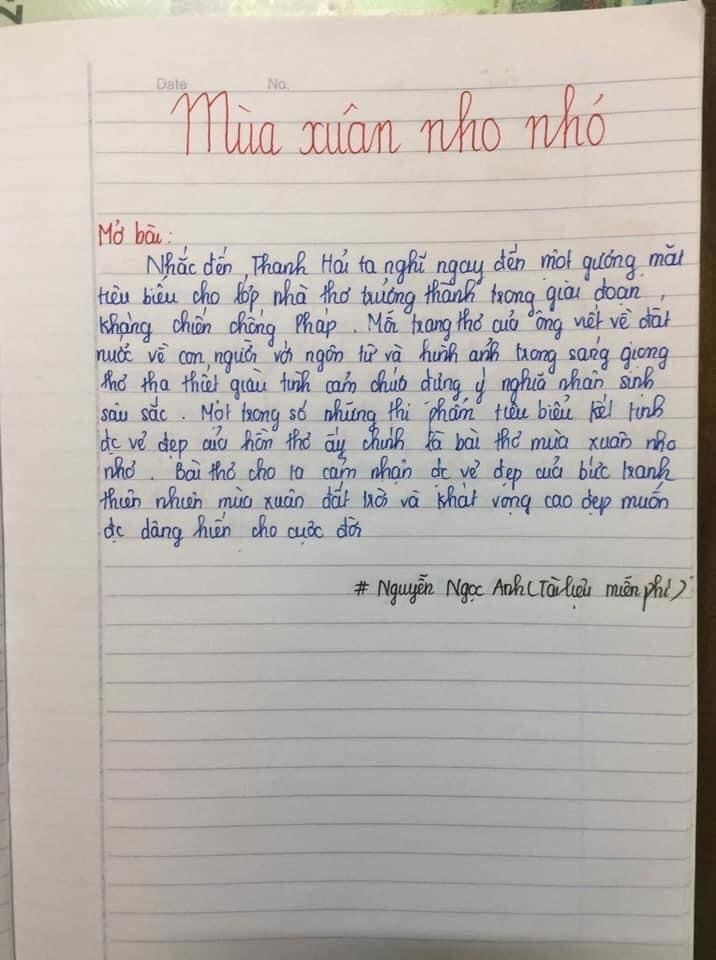 Date No.
Mùa xuân nho nhỏ
Mở bài:
Nhắc đến, Thanh Hải ta nghĩ ngay đến một gương mặt
tiêu biểu cho lớp nhà thơ trưởng thành trong giai đoạn,
kháng chiến chống Pháp. Mỗi trang thơ của ông viết về đất
nước về con người với ngôn từ và hình ảnh trong sáng giọng
thơ tha thiết giàu tình cảm chứa đựng ý nghĩa nhân sinh
sâu sắc. Một trong số những thi phẩm tiêu biểu kết tinh
đc vẻ đẹp của hồn thơ ấy chính là bài thơ mùa xuân nho
nhỏ. Bài thơ cho ta cảm nhận đc vẻ đẹp của bức tranh
thiên nhiên mùa xuân đất trời và khát vọng cao đẹp muốn
đc dâng hiến cho cuộc đời
# Nguyễn Ngọc Anh (Tài liệu miễn phí)